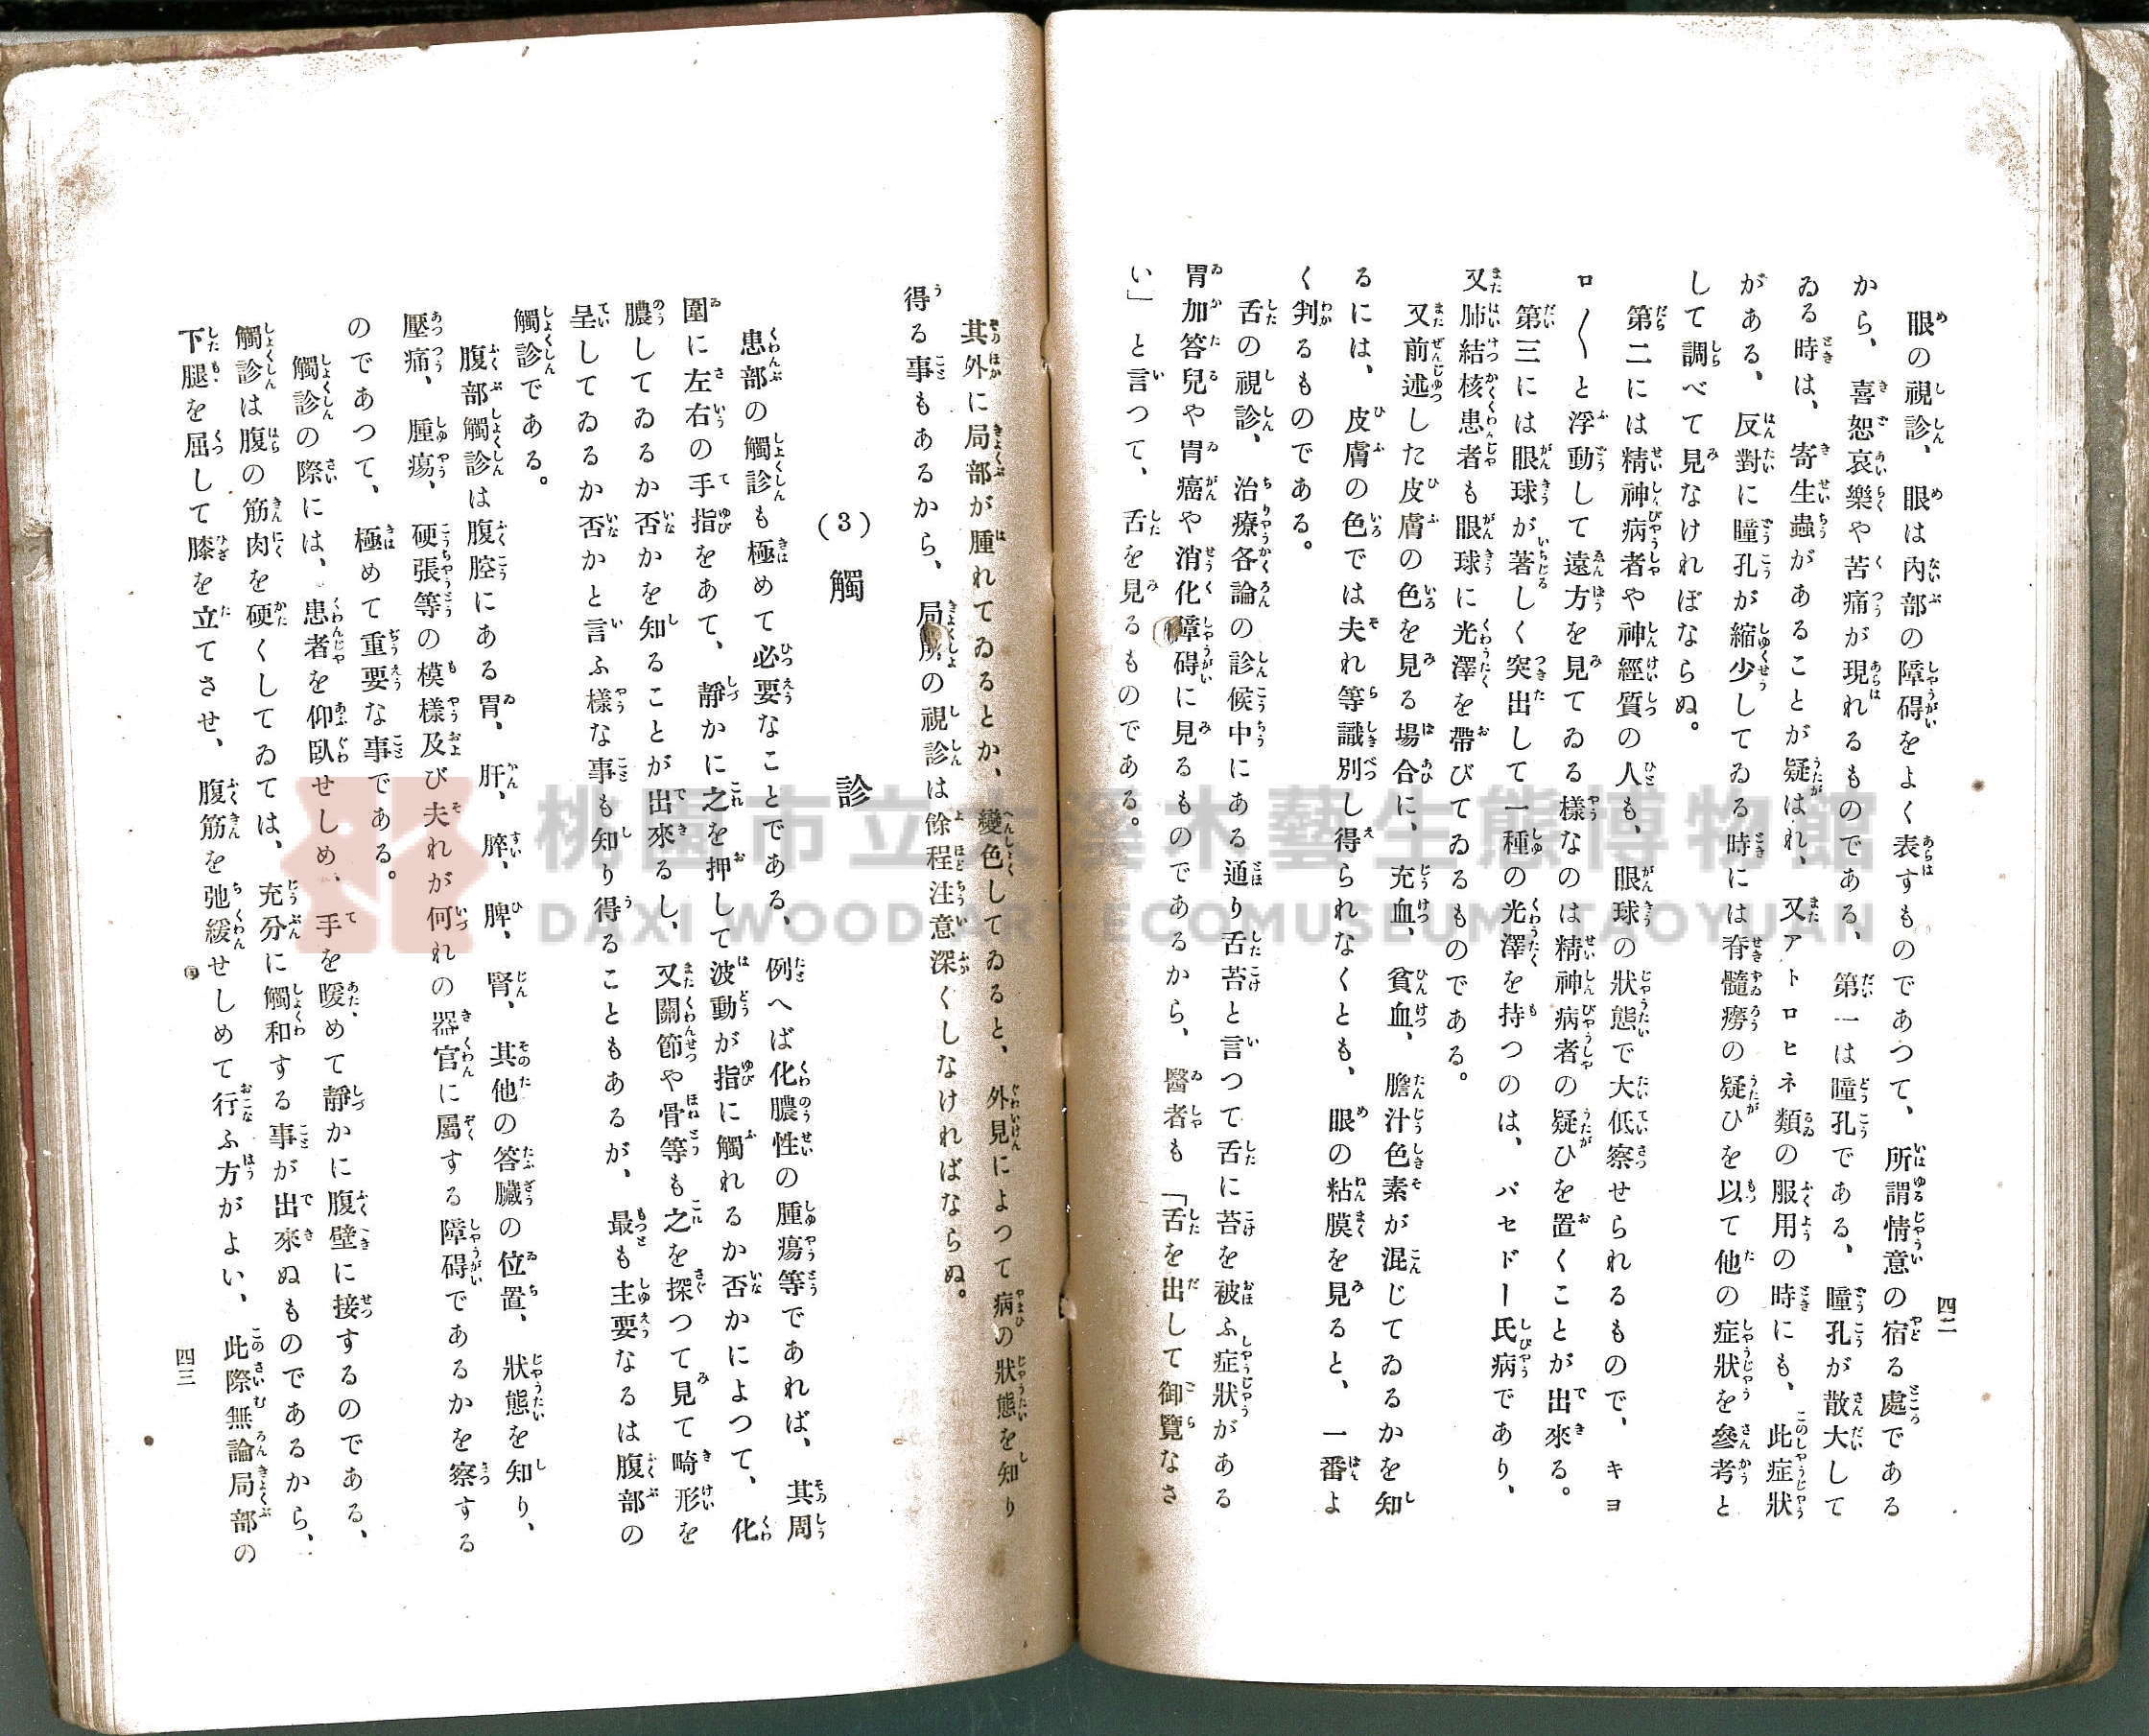 四二
眼の視診、眼は內部の障碍をよく表すものであつて、所謂情意の宿る處である
から、喜怒哀樂や苦痛が現れるものである、第一は瞳孔である、瞳孔が散大して
ゐる時は、寄生蟲があることが疑はれ、又アトロヒネ類の服用の時にも、此症狀
がある、反對に瞳孔が縮少してゐる時には脊髓癆の疑ひを以て他の症狀を參考と
して調べて見なければならぬ。
第二には精神病者や神經質の人も、眼球の狀態で大低察せられるもので、キヨ
ロ〱と浮動して遠方を見てゐる樣なのは精神病者の疑ひを置くことが出來る。
第三には眼球が著しく突出して一種の光澤を持つのは、パセドー氏病であり、
又肺結核患者も眼球に光澤を帶びてゐるものである。
又前述した皮膚の色を見る場合に、充血、貧血、膽汁色素が混じてゐるかを知
るには、皮膚の色では夫れ等識別し得られなくとも、眼の粘膜を見ると、一番よ
く判るものである。
舌の視診、治療各論の診候中にある通り舌苔と言つて舌に苔を被ふ症狀がある
胃加答兒や胃癌や消化障碍に見るものであるから、醫者も「舌を出して御覽なさ
い」と言つて、舌を見るものである。
其外に局部が腫れてゐるとか、變色してゐると、外見によつて病の狀態を知り
得る事もあるから、局所の視診は餘程注意深くしなければならぬ。
(3) 觸診
患部の觸診も極めて必要なことである、例へば化膿性の腫瘍等であれば、其周
圍に左右の手指をあて、靜かに之を押して波動が指に觸れるか否かによつて、化
膿してゐるか否かを知ることが出來るし、又關節や骨等も之を探つて見て畸形を
呈してゐるか否かと言ふ樣な事も知り得ることもあるが、最も主要なるは腹部の
觸診である。
腹部觸診は腹腔にある胃、肝、膵、脾、腎、其他の答臟の位置、狀態を知り、
壓痛、腫瘍、硬張等の模樣及び夫れが何れの器官に屬する障碍であるかを察する
のであつて、極めて重要な事である。
觸診の際には、患者を仰臥せしめ、手を暖めて靜かに腹壁に接するのである、
觸診は腹の筋肉を硬くしてゐては、充分に觸和する事が出來ぬものであるから、
下腿を屈して膝を立てさせ、腹筋を弛緩せしめて行ふ方がよい、此際無論局部の
四三
桃園市立大溪木藝生態博物館
DAXI WOOD ART ECOMUSEUM, TAOYUAN